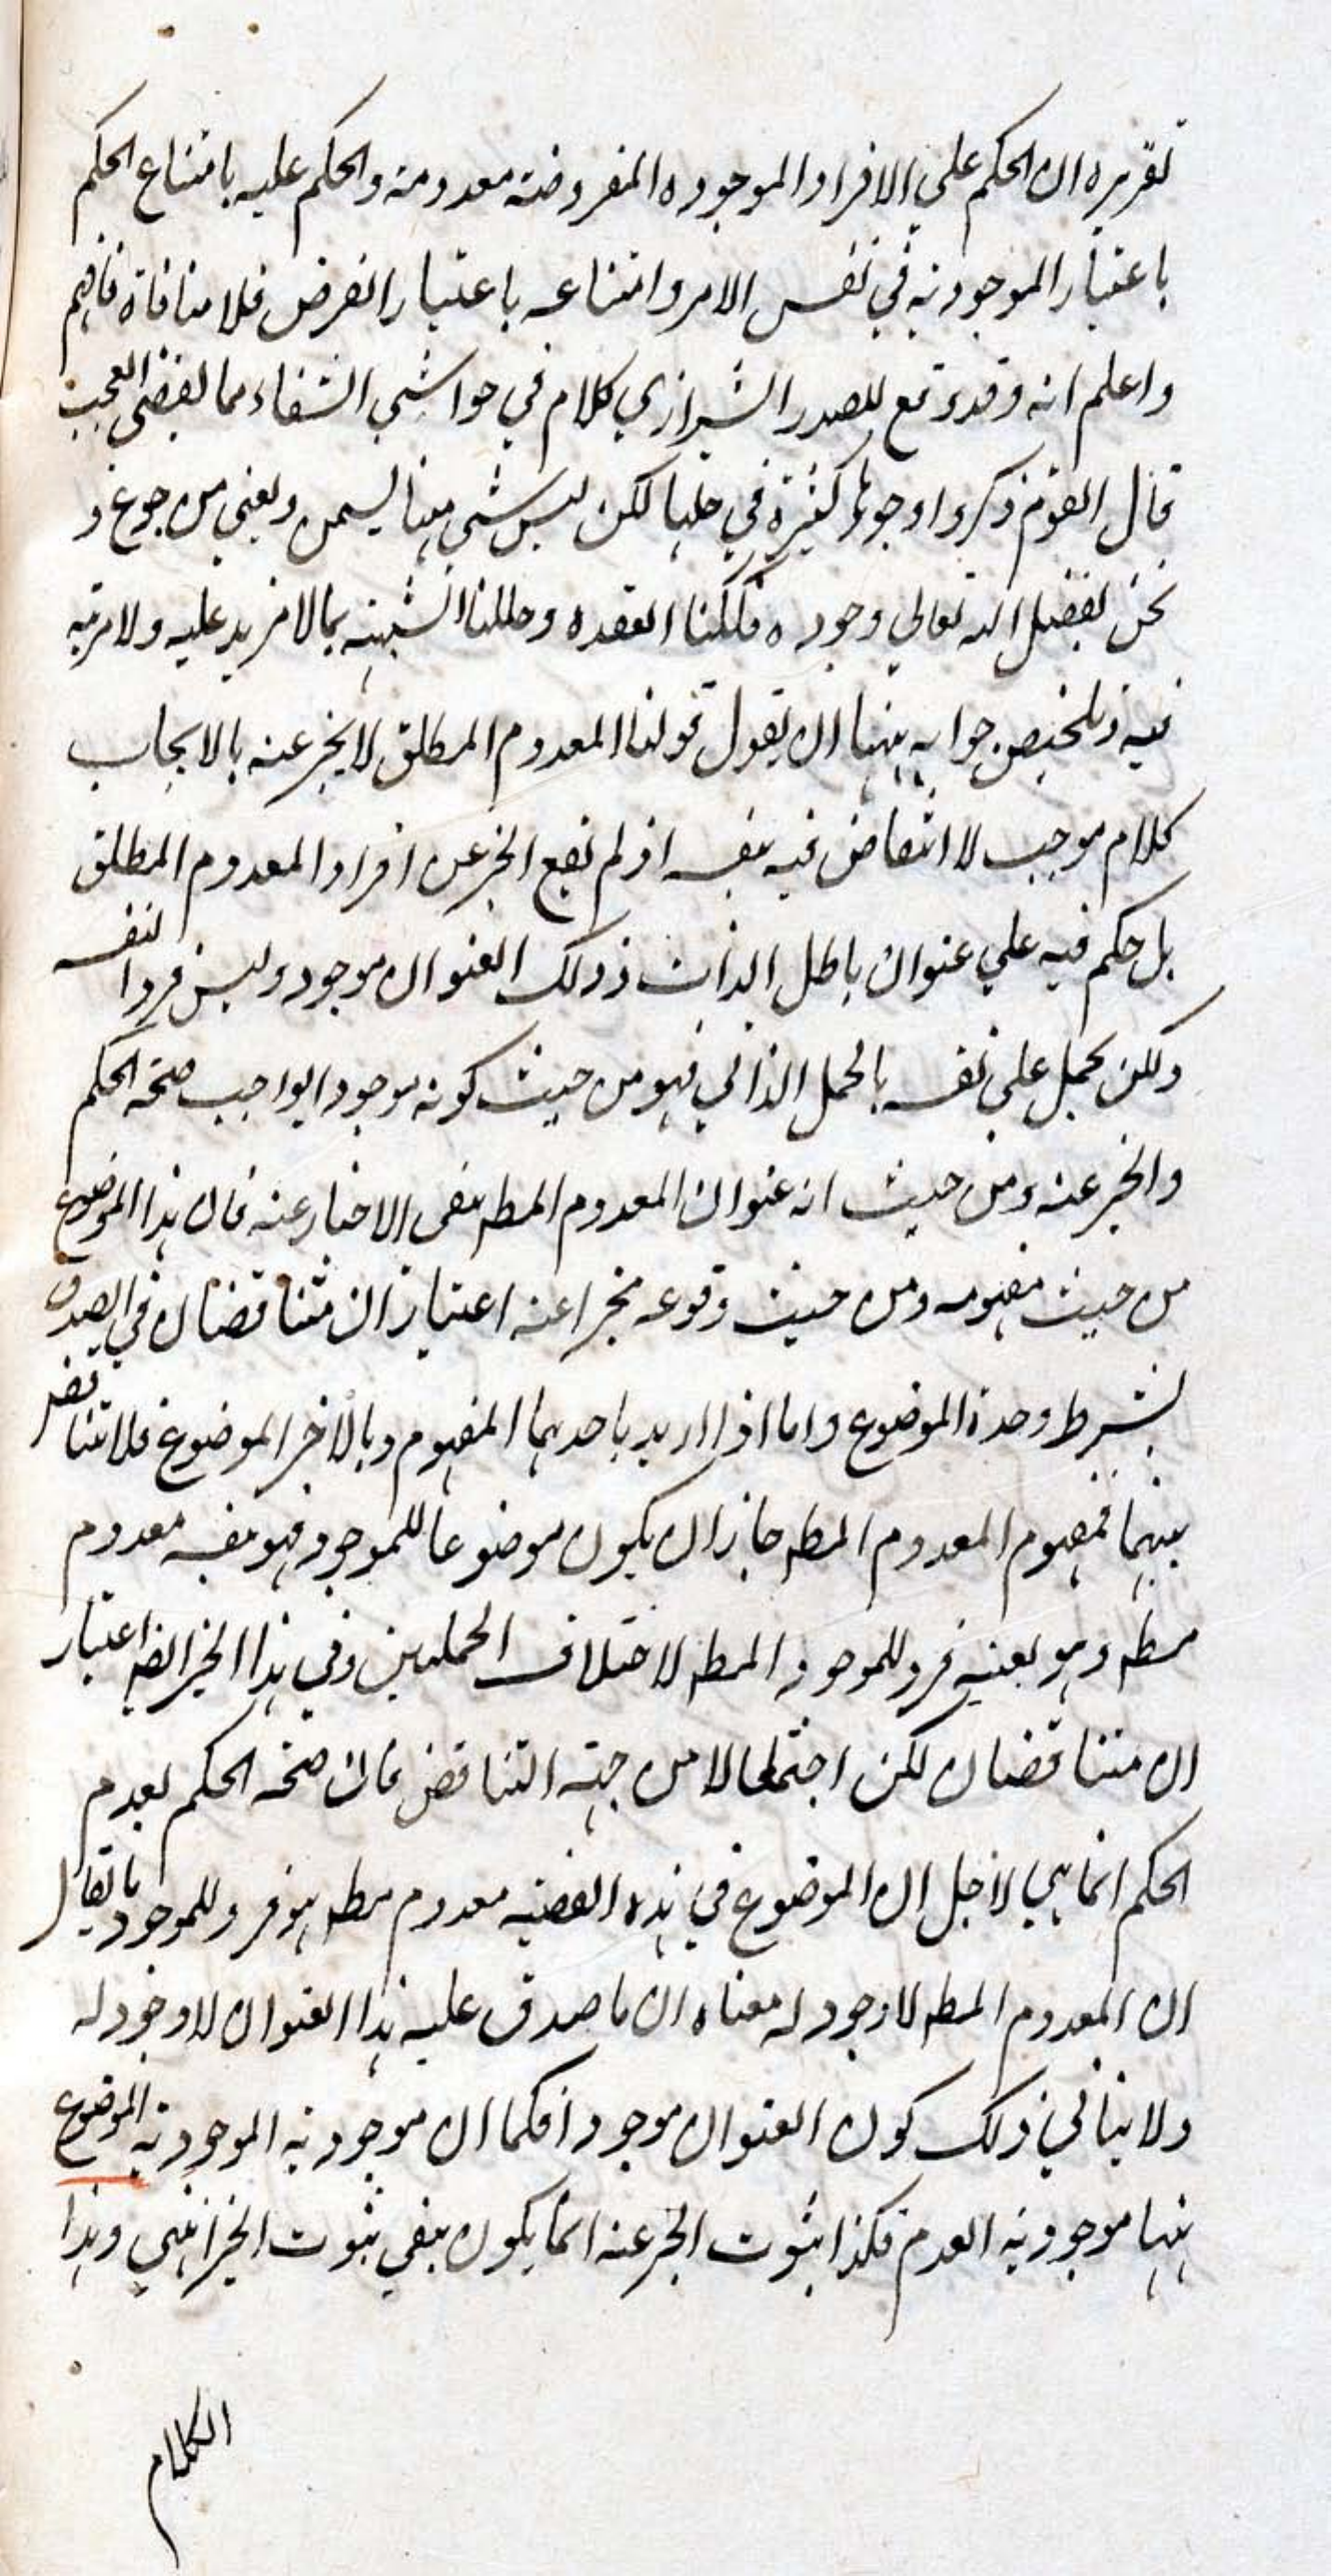 تقريره ان الحكم علي الافراد الموجوده المفروضة معدومة والحكم عليه بامتناع الحكم
باعتبار الموجودية في نفس الامر وامتناعه باعتبار الفرض فلا منافاة فافهم
واعلم انه وقد وقع للصدر الشيرازي كلام في حواشي الشفاء مما يفضي العجب
قال القوم ذكروا وجوها كثيرة في حلها لكن ليس شي منها يسمن ويغني من جوع و
نحن بفضل الله تعالي وجوده فككنا العقده وحللنا الشبهة بما لا مزيد عليه ولا مرية
فيه وتلخيص جوابه ههنا ان يقول قولنا المعدوم المطلق لا يخبر عنه بالايجاب
كلام موجب لا انتقاض فيه بنفسه اذ لم يقع الخبر عن افراد المعدوم المطلق
بل حكم فيه علي عنوان باطل الذات وذلك العنوان موجود وليس فردا لنفسه
ولكن يحمل علي نفسه بالحمل الذاتي فهو من حيث كونه موجودا يواجب صحة الحكم
والخبر عنه ومن حيث انه عنوان المعدوم المطـ نفى الاخبار عنه فان هذا الموضوع
من حيث مفهومه ومن حيث وقوعه مخبرا عنه اعتباران متناقضان في الصدق
بشرط وحدة الموضوع واما اذا اريد باحدهما المفهوم وبالآخر الموضوع فلا تناقض
بينهما فمفهوم المعدوم المطـ جاز ان يكون موضوعا للموجود فهو نفسه معدوم
مطـ وهو بعينه فرد للموجود المطـ لاختلاف الحملين وفي هذا الخبر ايضا اعتبار
ان متناقضان لكن اجتمعا لا من جهة التناقض فان صحة الحكم بعدم
الحكم انما هي لاجل ان الموضوع في هذه القضيه معدوم مطـ هو فرد للموجود فما يقال
ان المعدوم المطـ لا وجود له معناه ان ما صدق عليه هذا العنوان لا وجود له
ولا ينافي ذلك كون العنوان موجودا فكما ان موجودية الموجودية الموضوع
ههنا موجودية العدم فكذا ثبوت الخبر عنه انما يكون بنفي ثبوت الخبر انتهي وهذا
الكلام